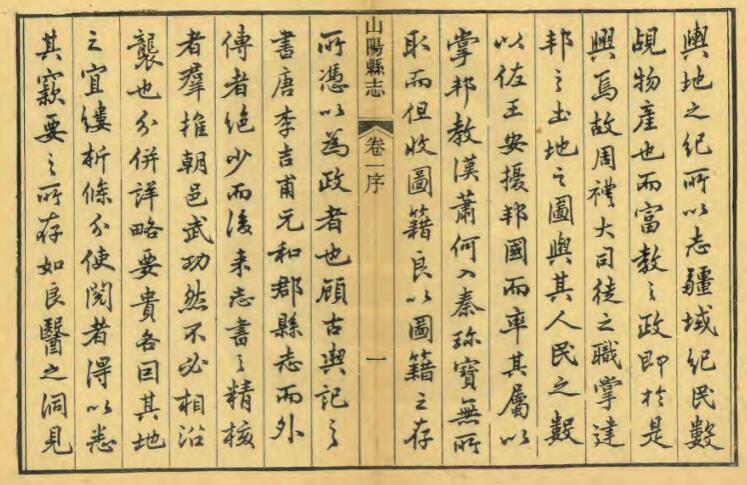 輿地之紀所以志疆域紀民數
覘物產也而富教之政即於是
興焉故周禮大司徒之職掌建
邦之土地之圖與其人民之數
以佐王安擾邦國而率其屬以
掌邦教漢蕭何入秦珍寶無所
取而但收圖籍良以圖籍之存
山陽縣志 卷一序 一
所憑以為政者也顧古輿記之
書唐李吉甫元和郡縣志而外
傳者絕少而後来志書之精核
者羣推朝邑武功然不必相沿
襲也分併詳略要貴各因其地
之宜縷析條分使閱者得以悉
其窾要之所存如良醫之洞見